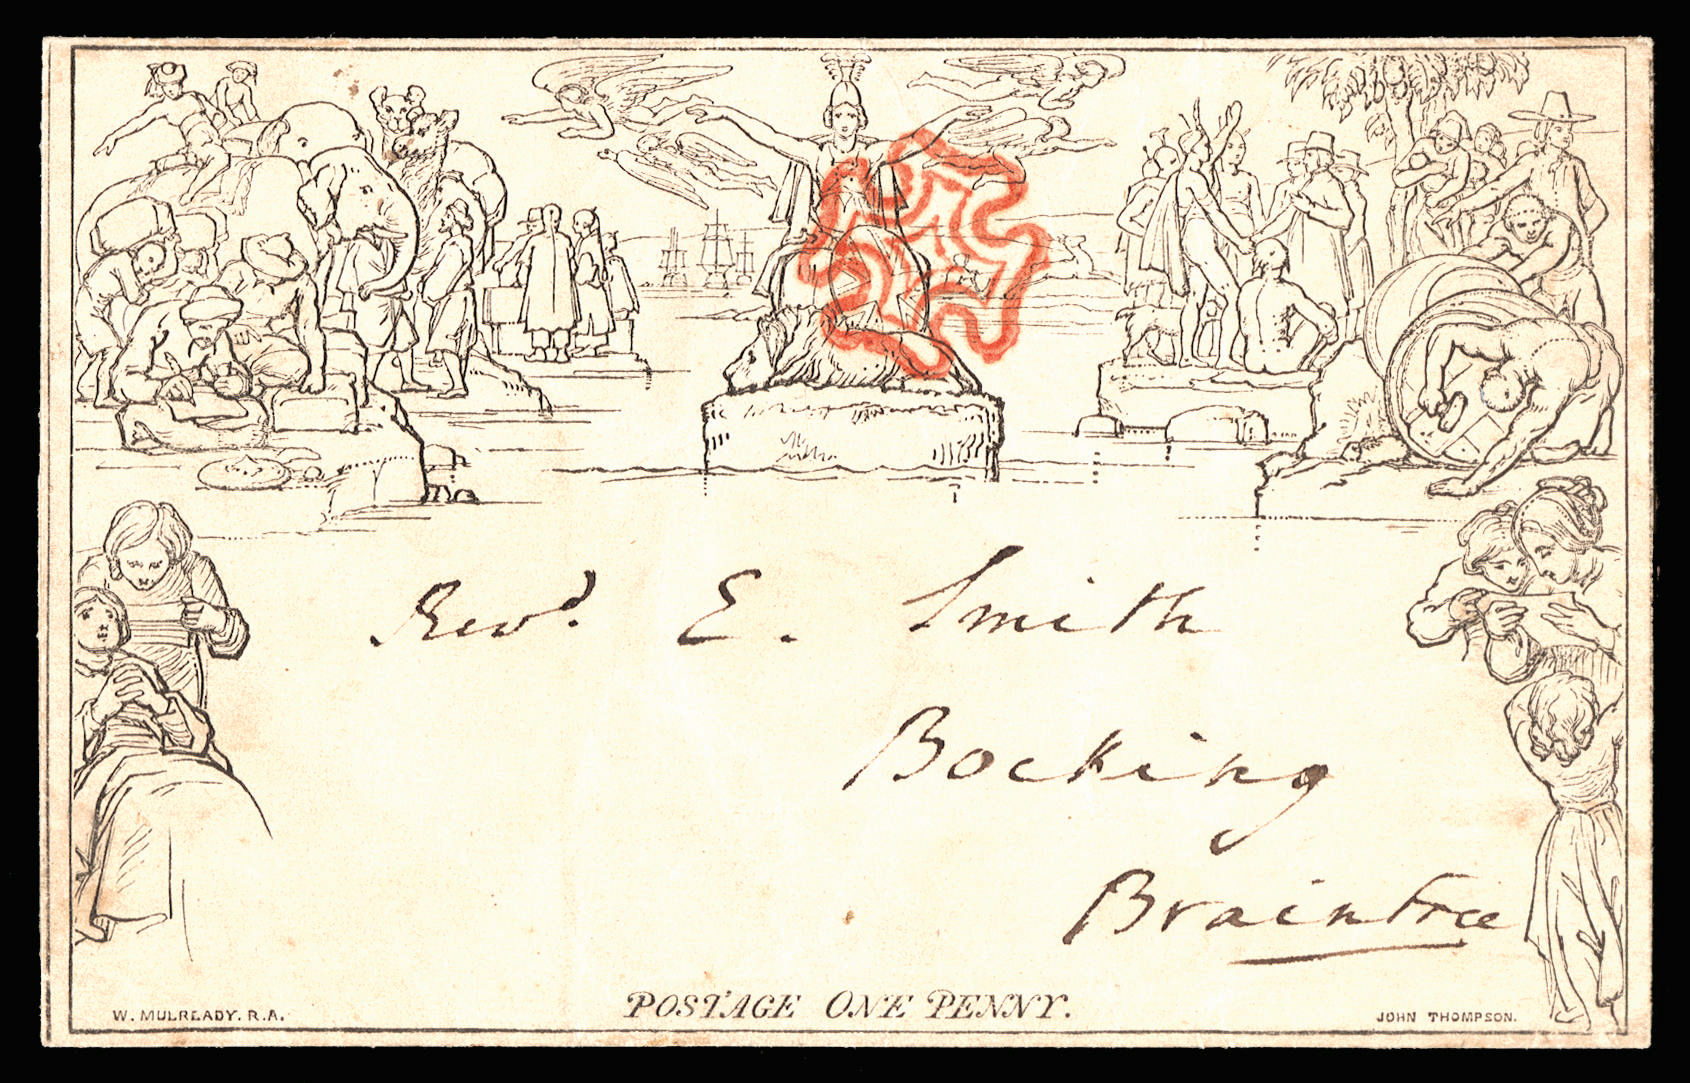 Revd. E. Smith
Bocking
Braintree
POSTAGE ONE PENNY.
W. MULREADY. R.A.
JOHN THOMPSON.